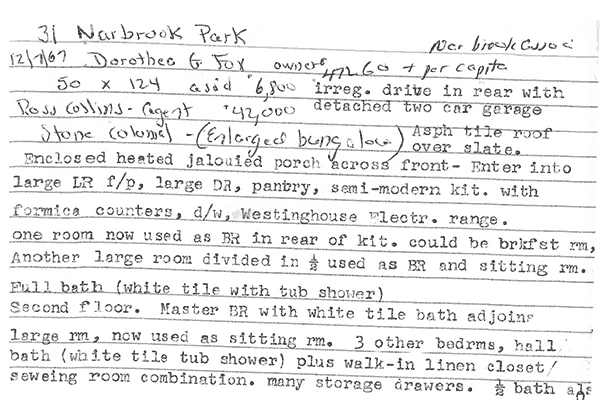 31 Narbrook Park
Narbrook Associ
12/7/67 Dorothea G Fox owners 472.60 + per capita
50 x 124 assd 6,800 irreg. drive in rear with
Ross Collins - agent $42,000 detached two car garage
Stone colonial - (Enlarged bungalow) Asph tile roof
over slate.
Enclosed heated jalouied porch across front- Enter into
large LR f/p, large DR, pantry, semi-modern kit. with
formica counters, d/w, Westinghouse Electr. range.
one room now used as BR in rear of kit. could be brkfst rm,
Another large room divided in ½ used as BR and sitting rm.
Full bath (white tile with tub shower)
Second floor. Master BR with white tile bath adjoins
large rm, now used as sitting rm. 3 other bedrms, hall
bath (white tile tub shower) plus walk-in linen closet/
seweing room combination. many storage drawers. ½ bath als